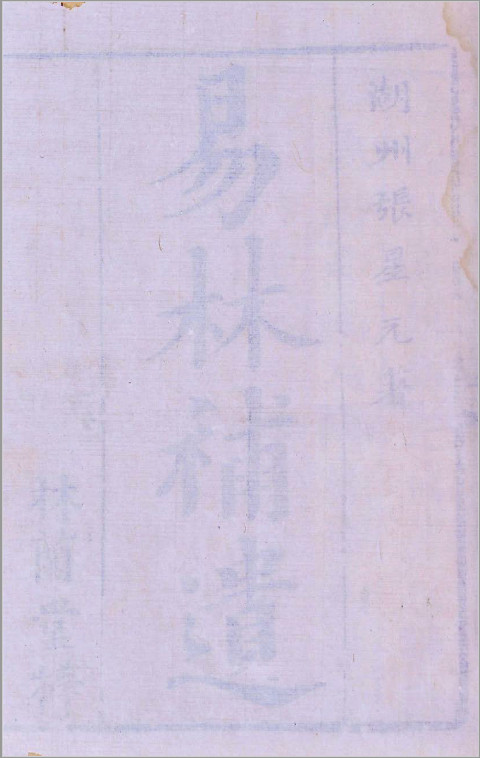 湖州張星元著
易林補遺
林
堂梓